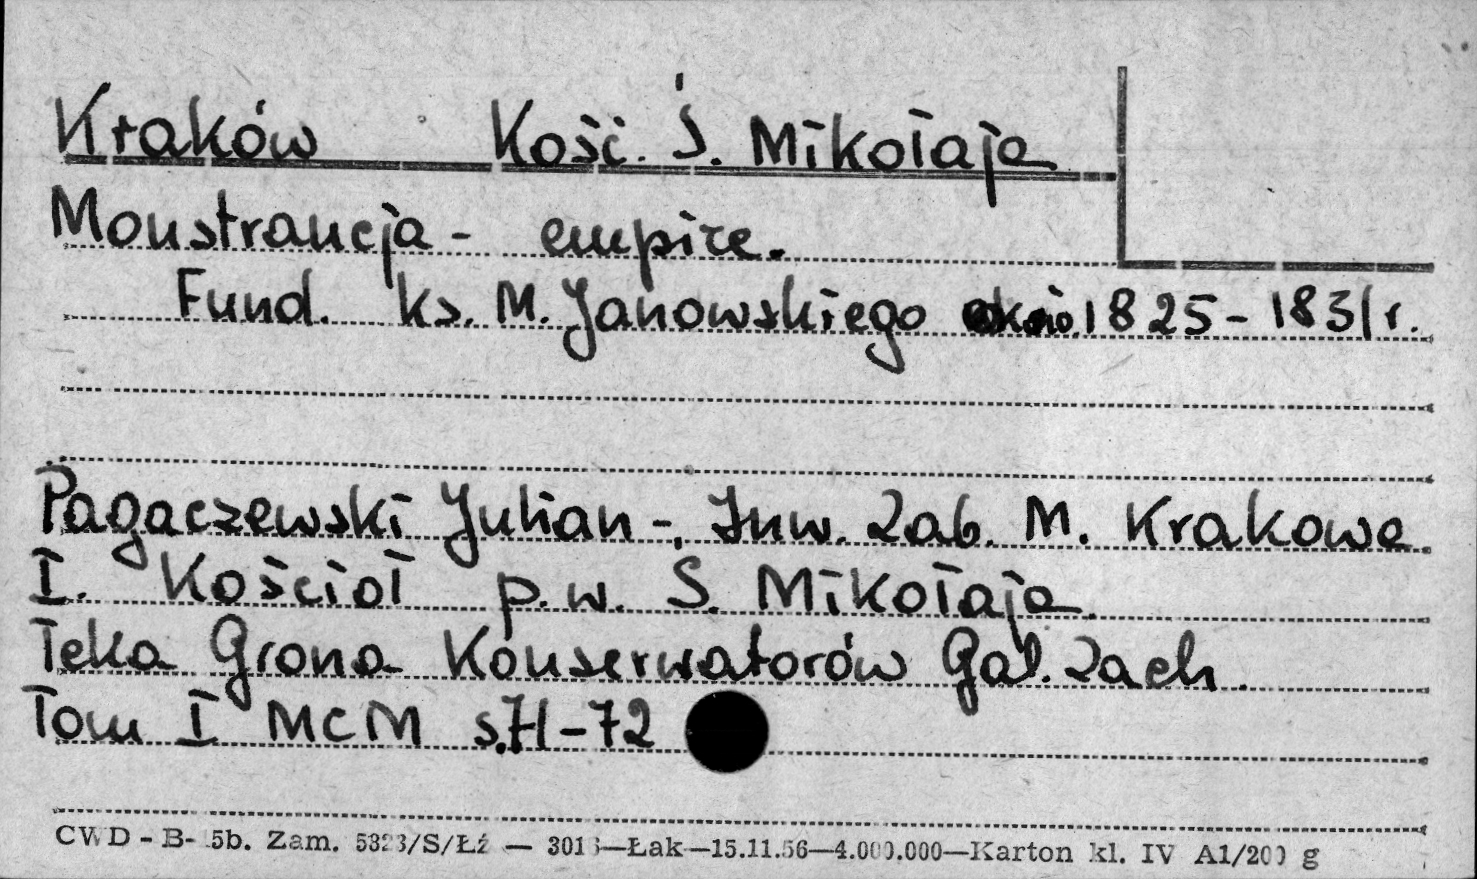 Kraków Kość. Ś. Mikołaja
Monstrancja - empire.
Fund. ks. M. Janowskiego około 1825 - 1831 r.
Pagaczewski Julian -, Inw. Zab. M. Krakowa
I. Kościoł p. w. S. Mikołaja.
Teka Grona Konserwatorów Gal. Zach.
Tom I MCM s. 71 - 72
CWD - B- 5b. Zam. 5323/S/Łź — 3013—Łak—15.11.56—4.000.000—Karton kl. IV A1/200 g